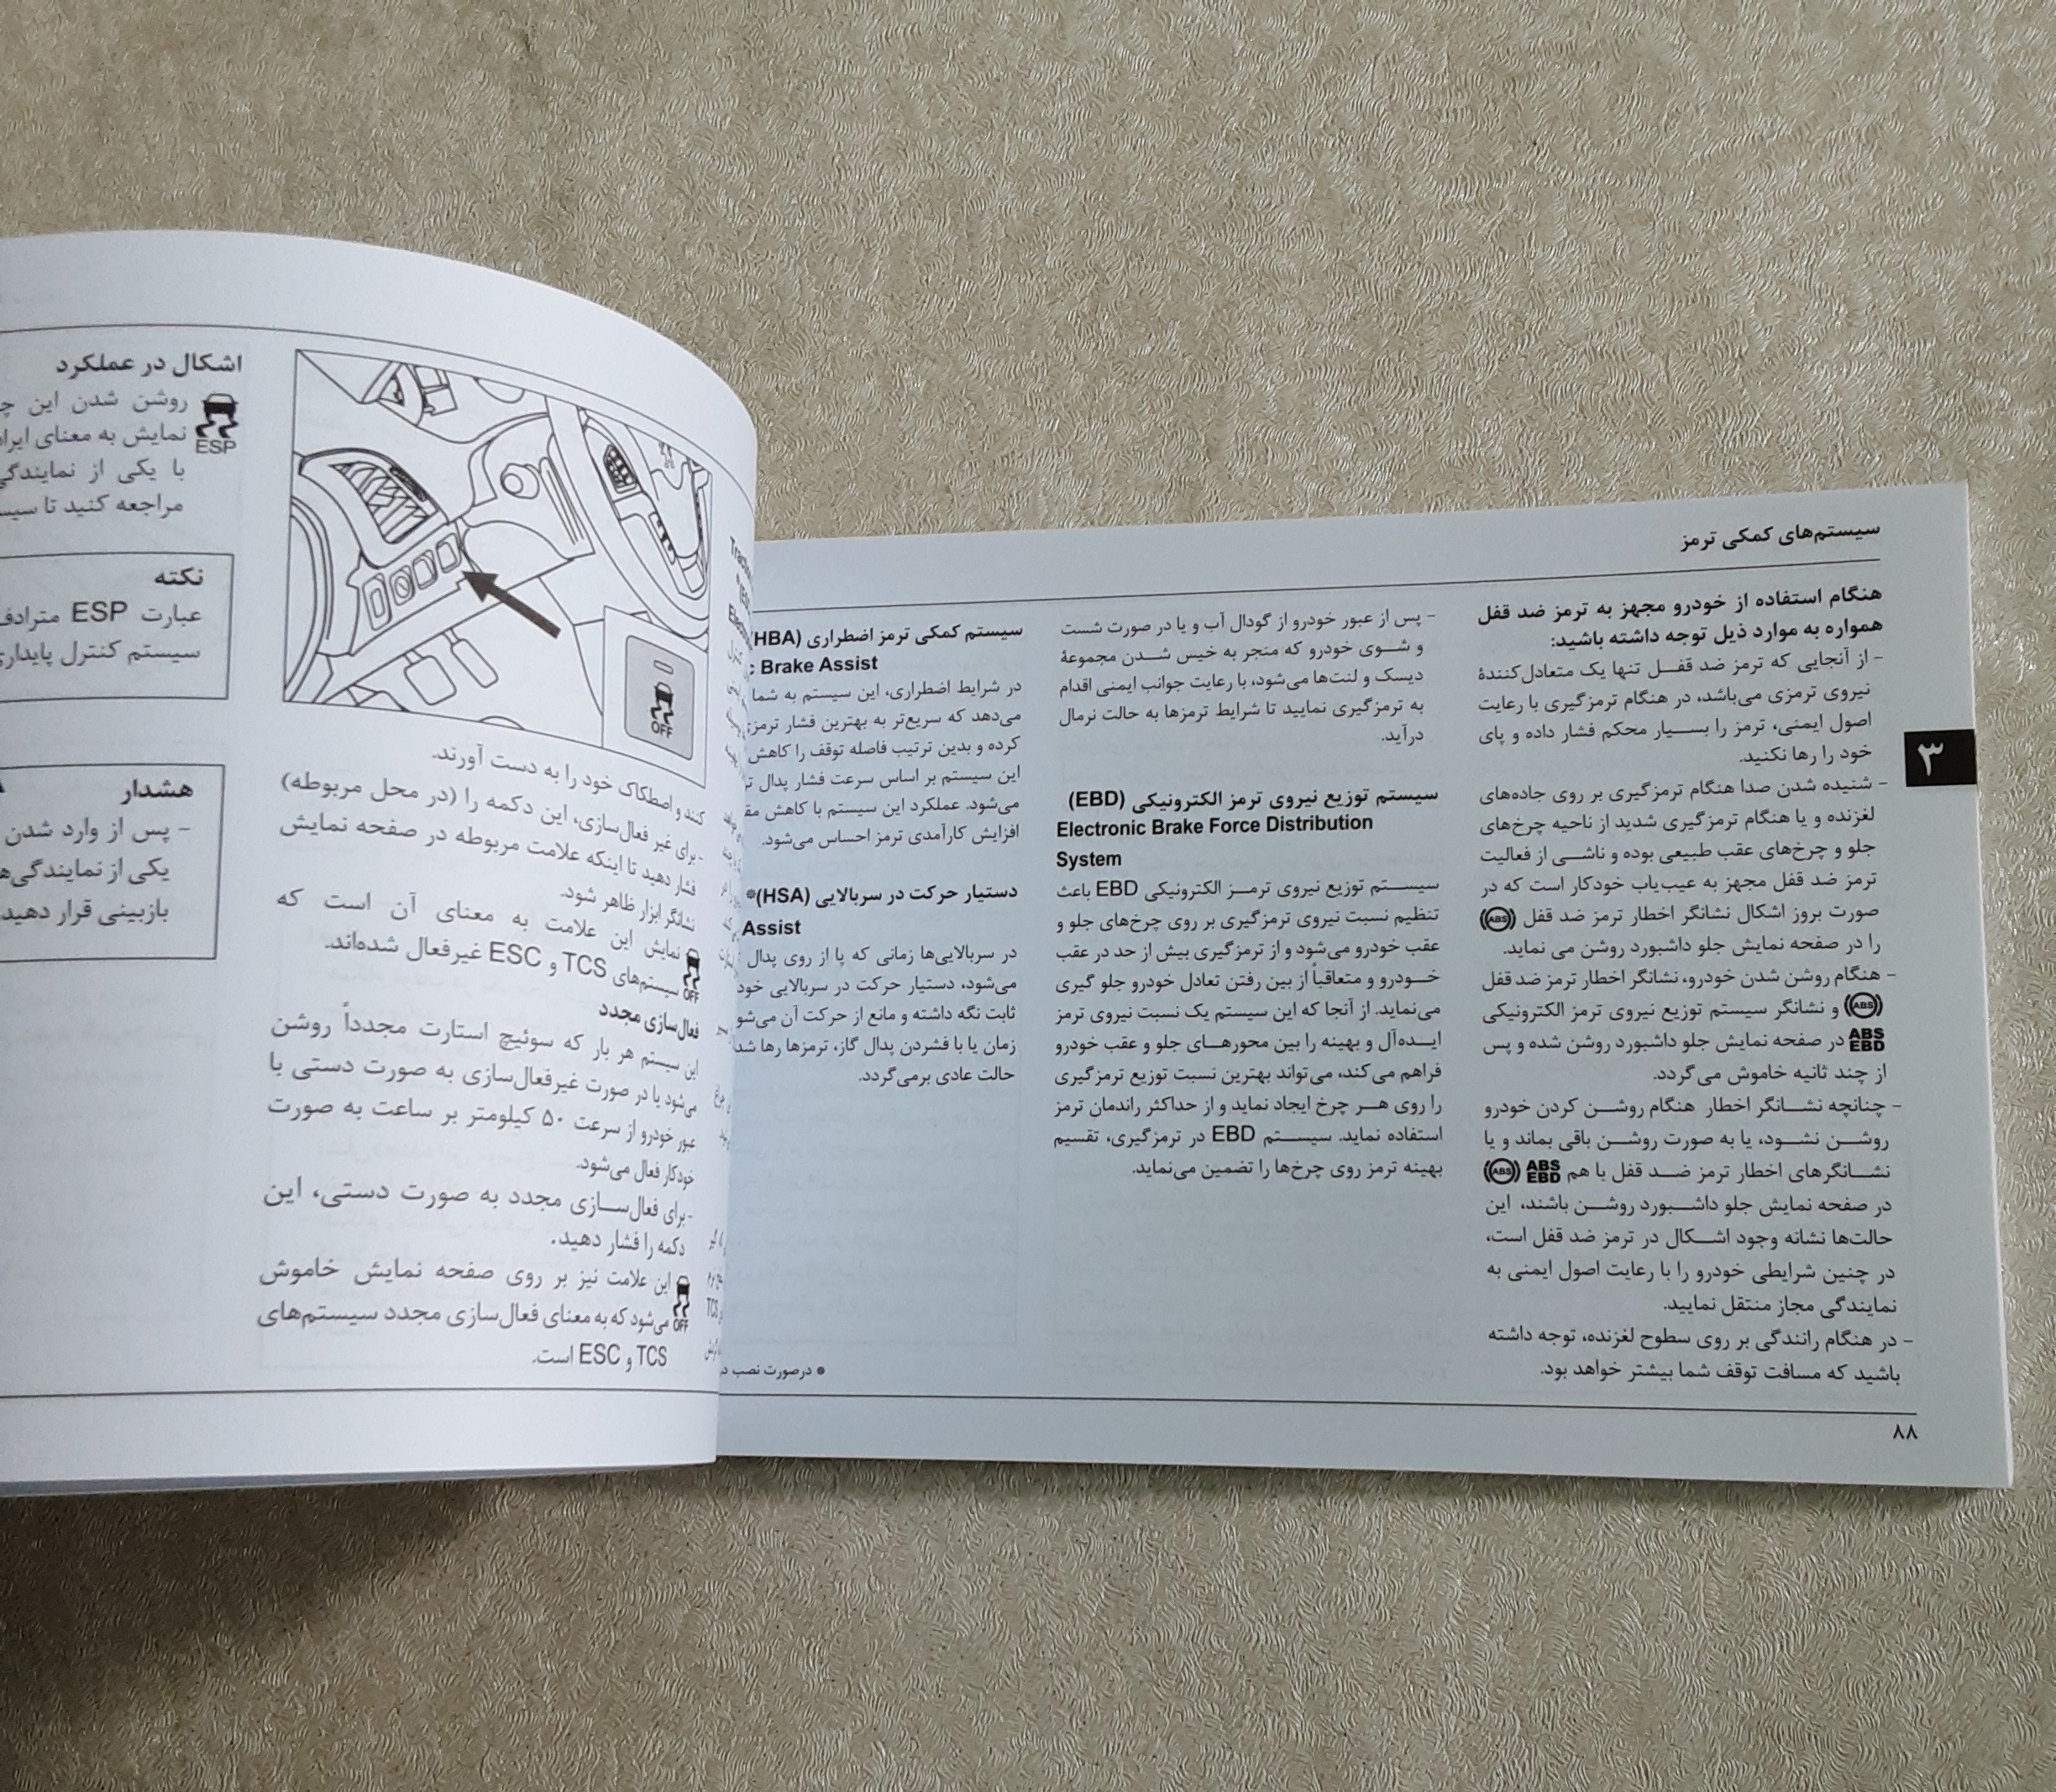 سیستم‌های کمکی ترمز
هنگام استفاده از خودرو مجهز به ترمز ضد قفل
همواره به موارد ذیل توجه داشته باشید:
- از آنجایی که ترمز ضد قفل تنها یک متعادل‌کنندهٔ
نیروی ترمزی می‌باشد، در هنگام ترمزگیری با رعایت
اصول ایمنی، ترمز را بسیار محکم فشار داده و پای
خود را رها نکنید.
- شنیده شدن صدا هنگام ترمزگیری بر روی جاده‌های
لغزنده و یا هنگام ترمزگیری شدید از ناحیه چرخ‌های
جلو و چرخ‌های عقب طبیعی بوده و ناشی از فعالیت
ترمز ضد قفل مجهز به عیب‌یاب خودکار است که در
صورت بروز اشکال نشانگر اخطار ترمز ضد قفل (ABS)
را در صفحه نمایش جلو داشبورد روشن می نماید.
- هنگام روشن شدن خودرو، نشانگر اخطار ترمز ضد قفل
(ABS) و نشانگر سیستم توزیع نیروی ترمز الکترونیکی
ABS EBD در صفحه نمایش جلو داشبورد روشن شده و پس
از چند ثانیه خاموش می‌گردد.
- چنانچه نشانگر اخطار هنگام روشن کردن خودرو
روشن نشود، یا به صورت روشن باقی بماند و یا
نشانگرهای اخطار ترمز ضد قفل با هم ABS EBD (ABS)
در صفحه نمایش جلو داشبورد روشن باشند، این
حالت‌ها نشانه وجود اشکال در ترمز ضد قفل است،
در چنین شرایطی خودرو را با رعایت اصول ایمنی به
نمایندگی مجاز منتقل نمایید.
- در هنگام رانندگی بر روی سطوح لغزنده، توجه داشته
باشید که مسافت توقف شما بیشتر خواهد بود.
۳
۸۸
- پس از عبور خودرو از گودال آب و یا در صورت شست
و شوی خودرو که منجر به خیس شدن مجموعهٔ
دیسک و لنت‌ها می‌شود، با رعایت جوانب ایمنی اقدام
به ترمزگیری نمایید تا شرایط ترمزها به حالت نرمال
درآید.
سیستم توزیع نیروی ترمز الکترونیکی (EBD)
Electronic Brake Force Distribution
System
سیستم توزیع نیروی ترمز الکترونیکی EBD باعث
تنظیم نسبت نیروی ترمزگیری بر روی چرخ‌های جلو و
عقب خودرو می‌شود و از ترمزگیری بیش از حد در عقب
خودرو و متعاقباً از بین رفتن تعادل خودرو جلو گیری
می‌نماید. از آنجا که این سیستم یک نسبت نیروی ترمز
ایده‌آل و بهینه را بین محورهای جلو و عقب خودرو
فراهم می‌کند، می‌تواند بهترین نسبت توزیع ترمزگیری
را روی هر چرخ ایجاد نماید و از حداکثر راندمان ترمز
استفاده نماید. سیستم EBD در ترمزگیری، تقسیم
بهینه ترمز روی چرخ‌ها را تضمین می‌نماید.
سیستم کمکی ترمز اضطراری (HBA)
Brake Assist
در شرایط اضطراری، این سیستم به شما
می‌دهد که سریع‌تر به بهترین فشار ترمز
کرده و بدین ترتیب فاصله توقف را کاهش
این سیستم بر اساس سرعت فشار پدال
می‌شود. عملکرد این سیستم با کاهش
افزایش کارآمدی ترمز احساس می‌شود.
دستیار حرکت در سربالایی (HSA)*
Assist
در سربالایی‌ها زمانی که پا از روی پدال
می‌شود، دستیار حرکت در سربالایی
ثابت نگه داشته و مانع از حرکت آن
زمان یا با فشردن پدال گاز، ترمزها رها
حالت عادی برمی‌گردد.
* درصورت نصب
OFF
کنند و اصطکاک خود را به دست آورند.
- برای غیر فعال‌سازی، این دکمه را (در محل مربوطه)
فشار دهید تا اینکه علامت مربوطه در صفحه نمایش
نشانگر ابزار ظاهر شود.
نمایش این علامت به معنای آن است که
OFF سیستم‌های TCS و ESC غیرفعال شده‌اند.
فعال‌سازی مجدد
این سیستم هر بار که سوئیچ استارت مجدداً روشن
می‌شود یا در صورت غیرفعال‌سازی به صورت دستی با
عبور خودرو از سرعت ۵۰ کیلومتر بر ساعت به صورت
خودکار فعال می‌شود.
- برای فعال‌سازی مجدد به صورت دستی، این
دکمه را فشار دهید.
این علامت نیز بر روی صفحه نمایش خاموش
OFF می‌شود که به معنای فعال‌سازی مجدد سیستم‌های
TCS و ESC است.
اشکال در عملکرد
روشن شدن این
ESP نمایش به معنای
با یکی از
مراجعه کنید تا
نکته
عبارت ESP مترادف
سیستم کنترل
هشدار
- پس از وارد شدن
یکی از
بازبینی قرار دهید